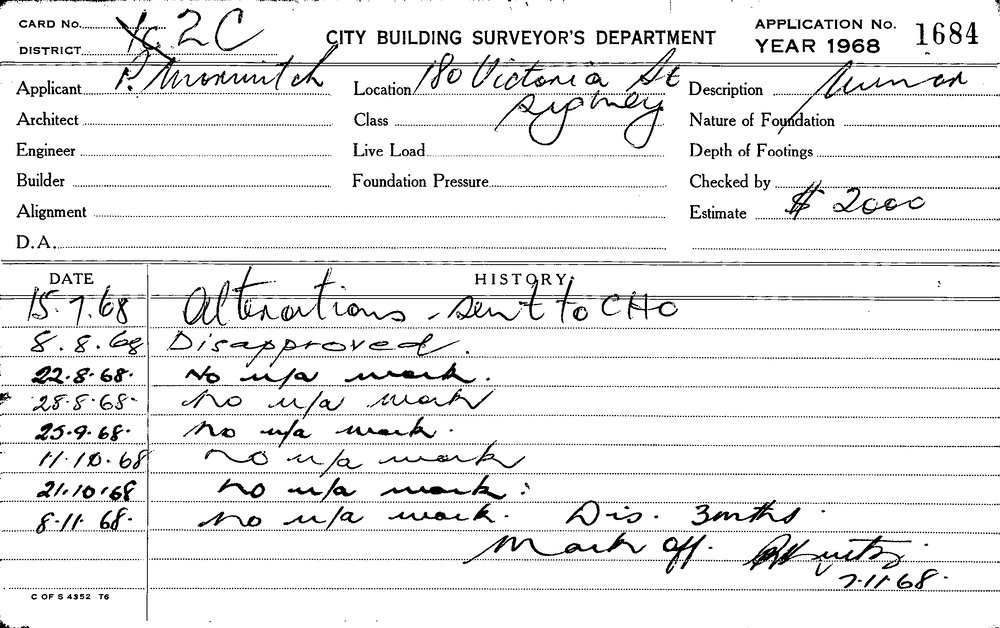 CARD No. 2C
DISTRICT
CITY BUILDING SURVEYOR'S DEPARTMENT
APPLICATION No. 1684
YEAR 1968
Applicant P.
Location 180 Victoria St
Sydney
Description
Architect
Class
Nature of Foundation
Engineer
Live Load
Depth of Footings
Builder
Foundation Pressure
Checked by
Alignment
Estimate $ 2000
D.A.
DATE HISTORY
15.7.68 Alterations - sent to CHO
8.8.68 Disapproved.
22.8.68. No u/a work.
28.8.68. No u/a work
25.9.68. No u/a work.
11.10.68 No u/a work
21.10.68 No u/a work.
8.11.68. No u/a work. Dis. 3mths.
Mark off.
7.11.68.
C OF S 4352 T6